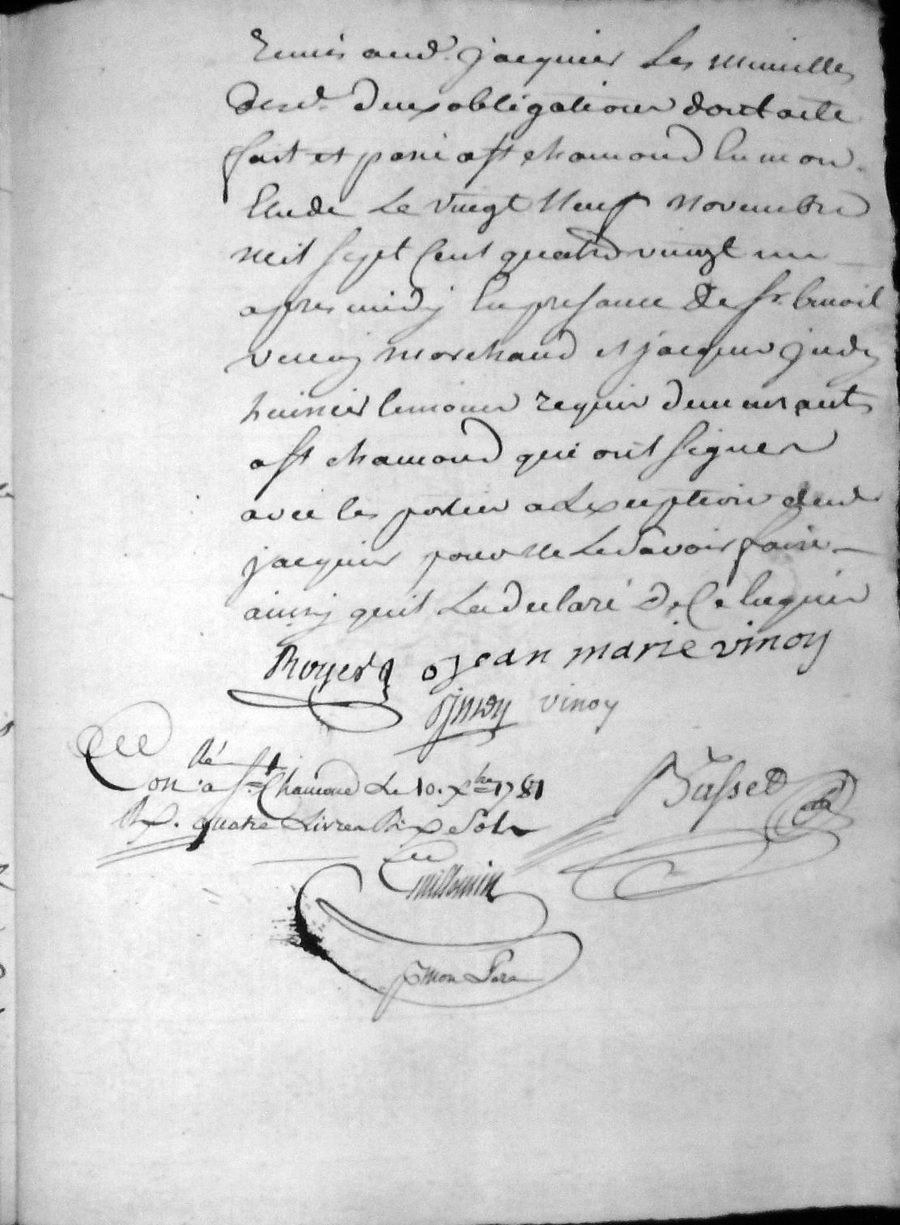 Remis aud. jacquier Les minuttes
desd. deux obligations dont acte
fait et passé a st chamond En mon
Etude Le vingt Neuf novembre
mil sept Cent quatre vingt un
apres midy En presance de sr. benoit
marchand et jacques jurdy
huissier temoins requis demeurants
a st chamond qui ont signer
avec les parties a Lexception dud.
jacquier pour ne Le savoir faire
ainsy quil La declaré De Ce Enquis
Royer jean marie vinoy
vinoy
Con.lé a St Chamond Le 10. xbre 1781
Rx. quatre Livres dix sols
Basset
millomin
pr mon Pere